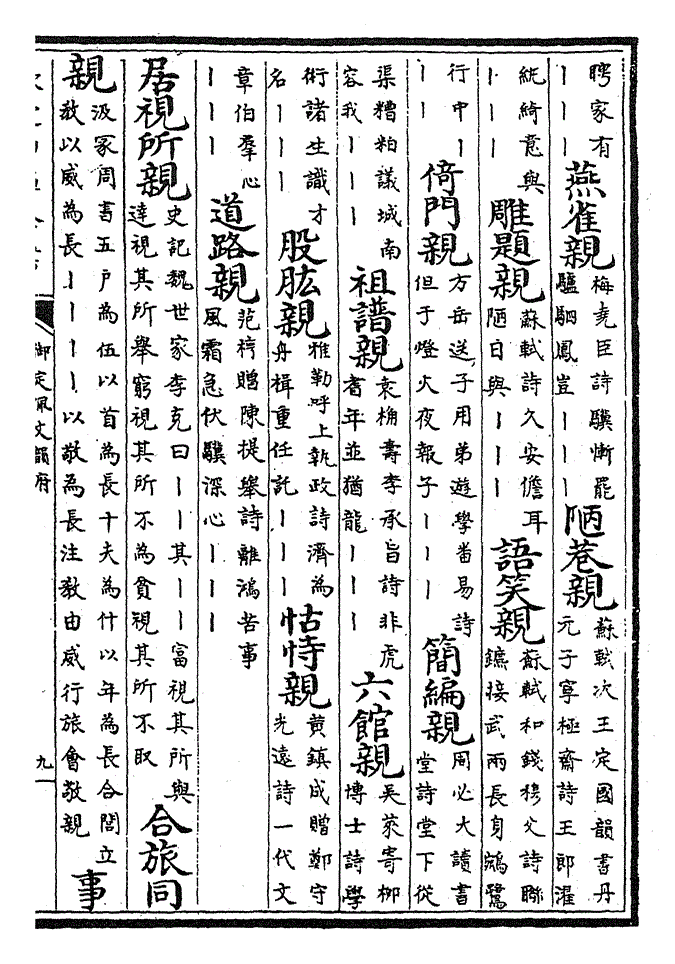 聘家有｜｜｜燕雀親梅堯臣詩驥慚罷驢駟鳳豈｜｜｜陋巷親蘇軾次王定國韻書丹元子寧極齋詩王郎濯
紈綺意與｜｜｜雕題親蘇軾詩久安儋耳陋日與｜｜｜語笑親蘇軾和錢穆父詩聯鑣接武兩長身鵷鷺
行中｜｜｜倚門親方岳送子用弟遊學番易詩但于燈火夜報子｜｜｜簡編親周必大讀書堂詩堂下從
渠糟粕議城南容我｜｜｜祖譜親袁桷壽李承旨詩非虎耆年並猶龍｜｜｜六館親吳萊寄柳博士詩學
術諸生識才名｜｜｜股肱親雅勒呼上執政詩濟為舟楫重任託｜｜｜怙恃親黃鎮成贈鄭守光遠詩一代文
章伯羣心｜｜｜道路親范梈贈陳提舉詩離鴻苦事風霜急伏驥深心｜｜｜
居視所親史記魏世家李克曰｜｜其｜｜富視其所與達視其所舉窮視其所不為貧視其所不取合旅同
親汲冢周書五戶為伍以首為長十夫為什以年為長合閭立教以威為長｜｜｜｜以敬為長注教由威行旅會敬親事
御定佩文韻府
九